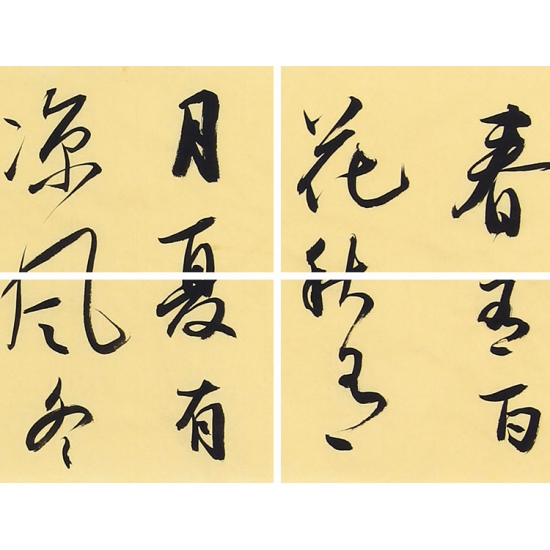 春有百
花秋有
月夏有
凉风冬